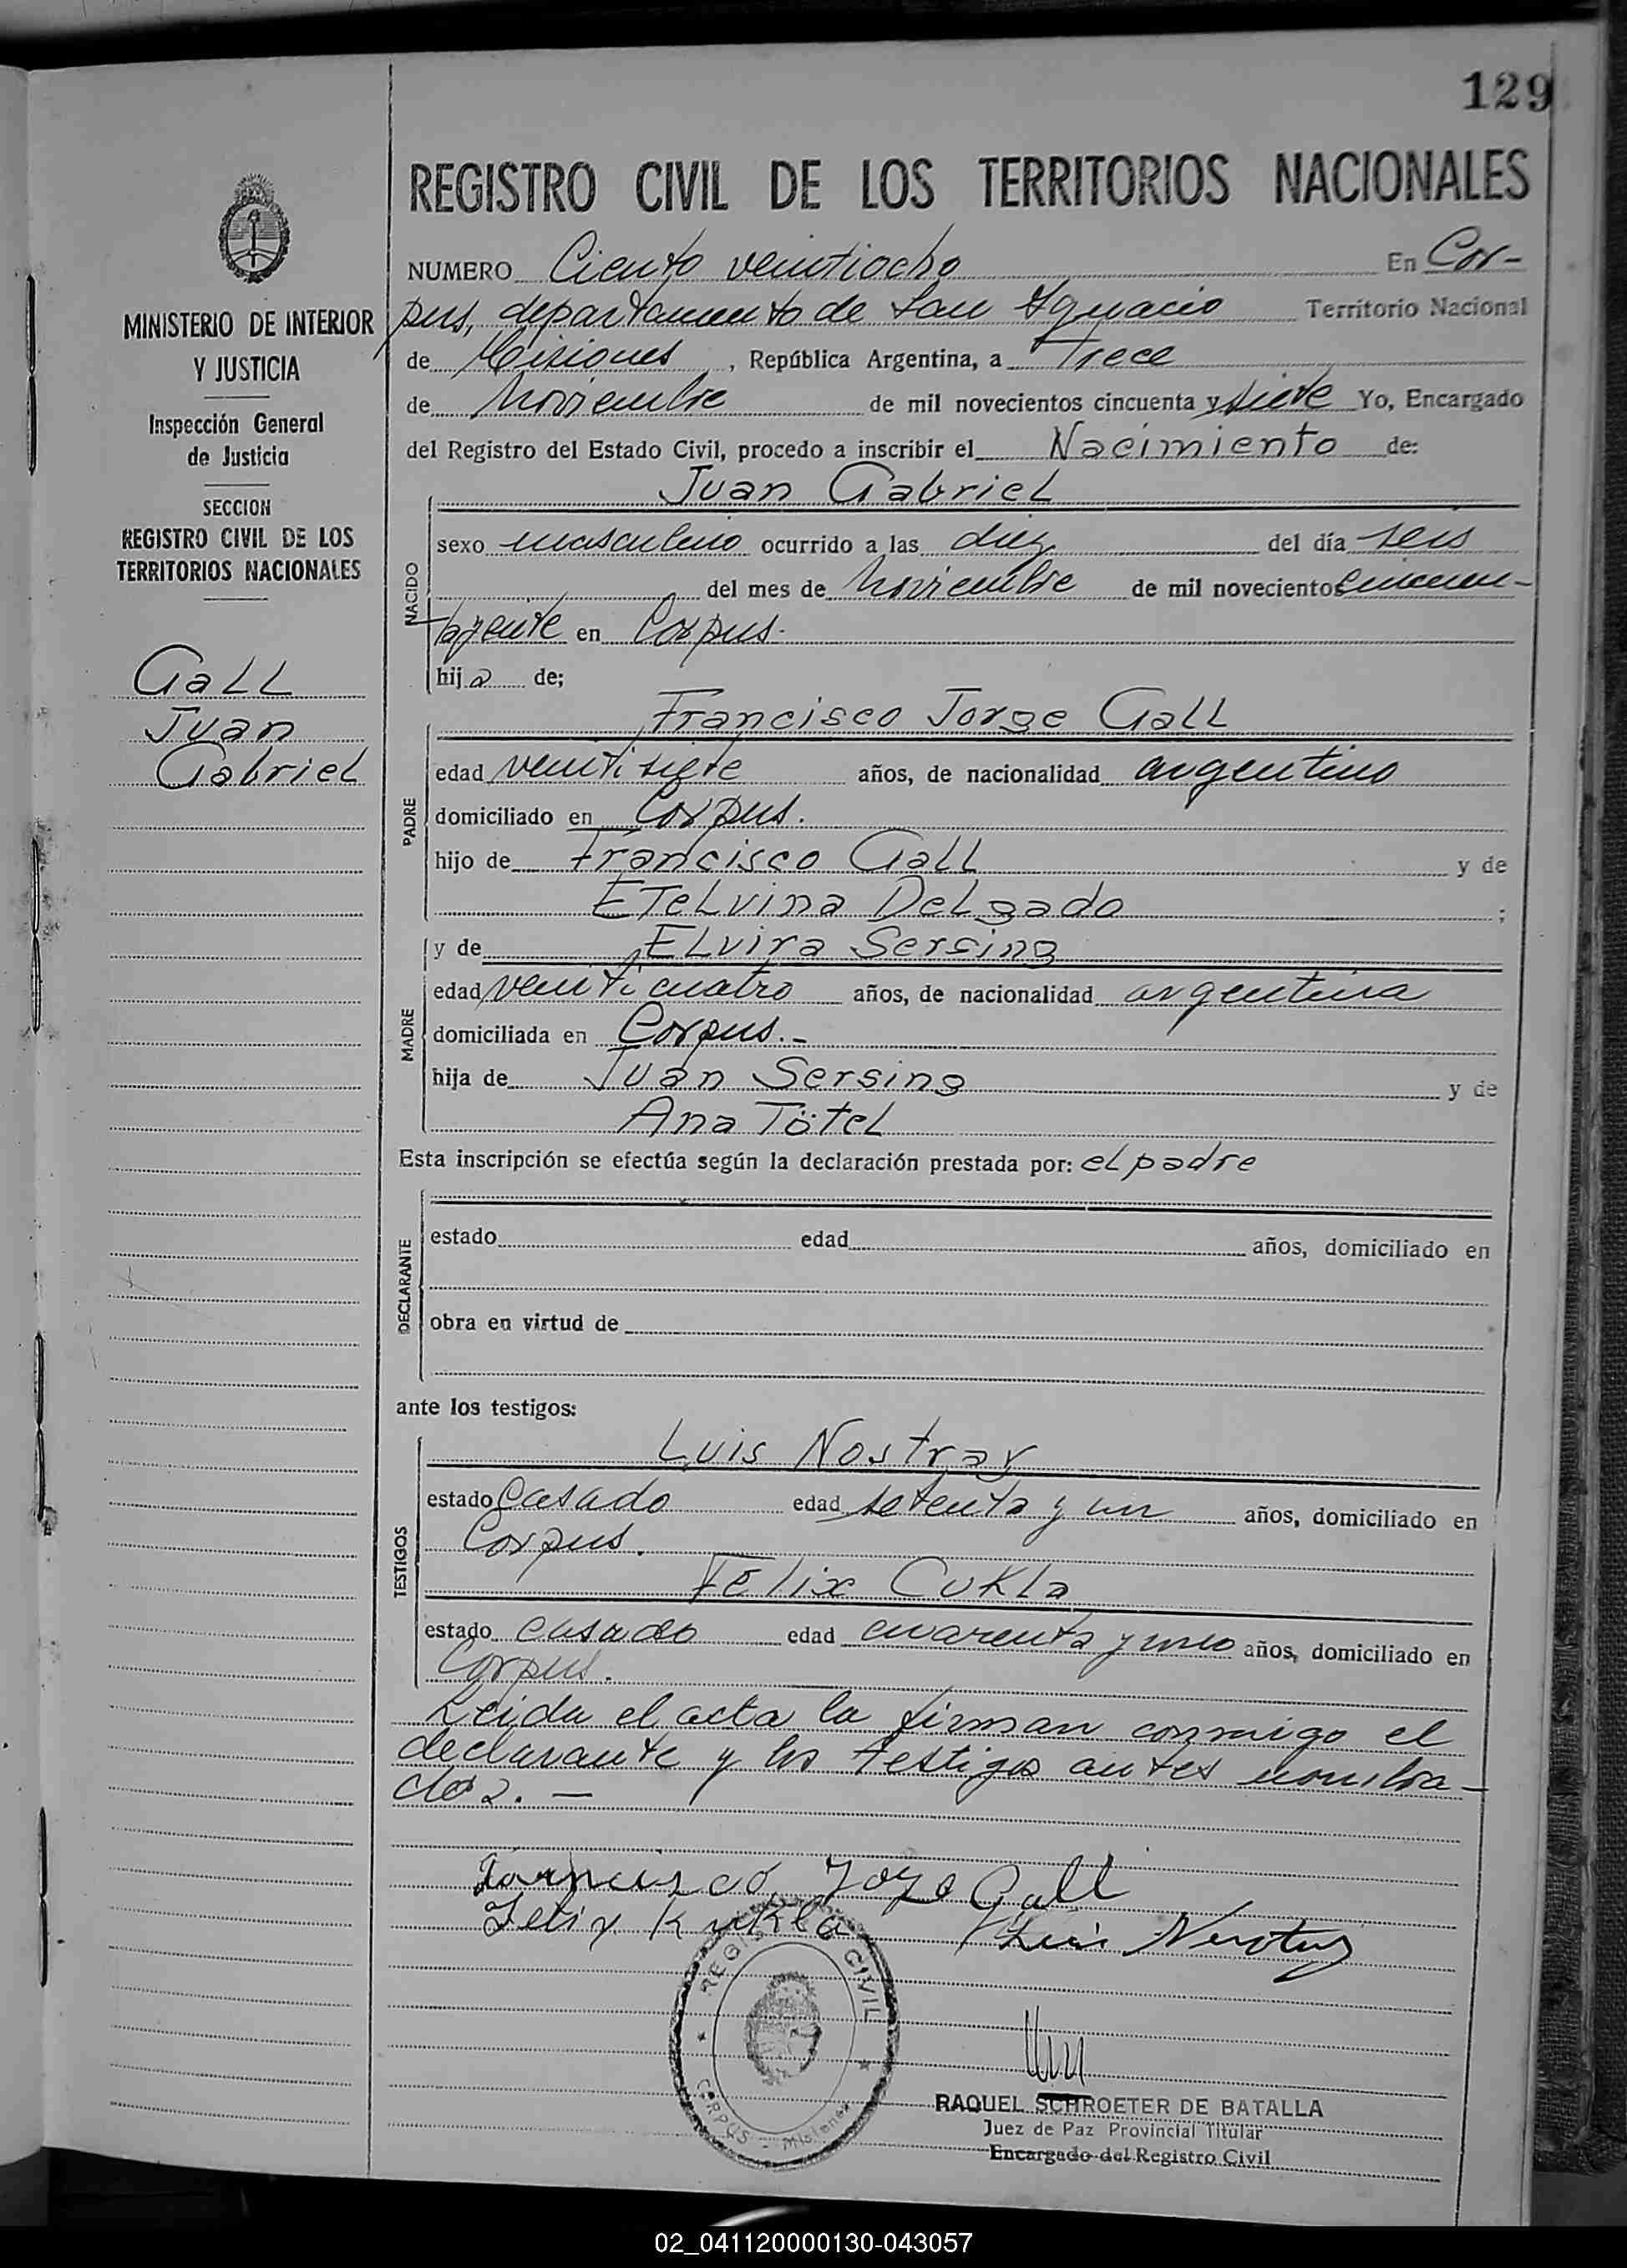 129
REGISTRO CIVIL DE LOS TERRITORIOS NACIONALES
MINISTERIO DE INTERIOR
Y JUSTICIA
Inspección General
de Justicia
SECCION
REGISTRO CIVIL DE LOS
TERRITORIOS NACIONALES
Gall
Juan
Gabriel
NUMERO Ciento veintiocho En Cor-
pus, departamento de San Ignacio Territorio Nacional
de Misiones, República Argentina, a Trece
de Noviembre de mil novecientos cincuenta y siete Yo, Encargado
del Registro del Estado Civil, procedo a inscribir el Nacimiento de:
NACIDO
Juan Gabriel
sexo masculino ocurrido a las diez del día seis
del mes de Noviembre de mil novecientos cincuen-
en Corpus.
hijo de;
PADRE
Francisco Jorge Gall
edad veintisiete años, de nacionalidad argentino
domiciliado en Corpus.
hijo de Francisco Gall y de
Etelvina Delgado ;
MADRE
y de Elvira Sersing
edad veinticuatro años, de nacionalidad argentina
domiciliada en Corpus.-
hija de Juan Sersing y de
Ana Tötel
Esta inscripción se efectúa según la declaración prestada por: el padre
DECLARANTE
estado edad años, domiciliado en
obra en virtud de
ante los testigos:
TESTIGOS
Luis Nostray
estado Casado edad setenta y un años, domiciliado en
Corpus.
Felix Cukla
estado casado edad cuarenta y años, domiciliado en
Corpus.
Leida el acta la firman conmigo el
declarante y los testigos antes nombra-
dos. —
Jorge Gall
Felix Kukla Luis
REGIS CIVIL
CORPUS - Misiones
RAQUEL SCHROETER DE BATALLA
Juez de Paz Provincial Titular
Encargado del Registro Civil
02_041120000130-043057